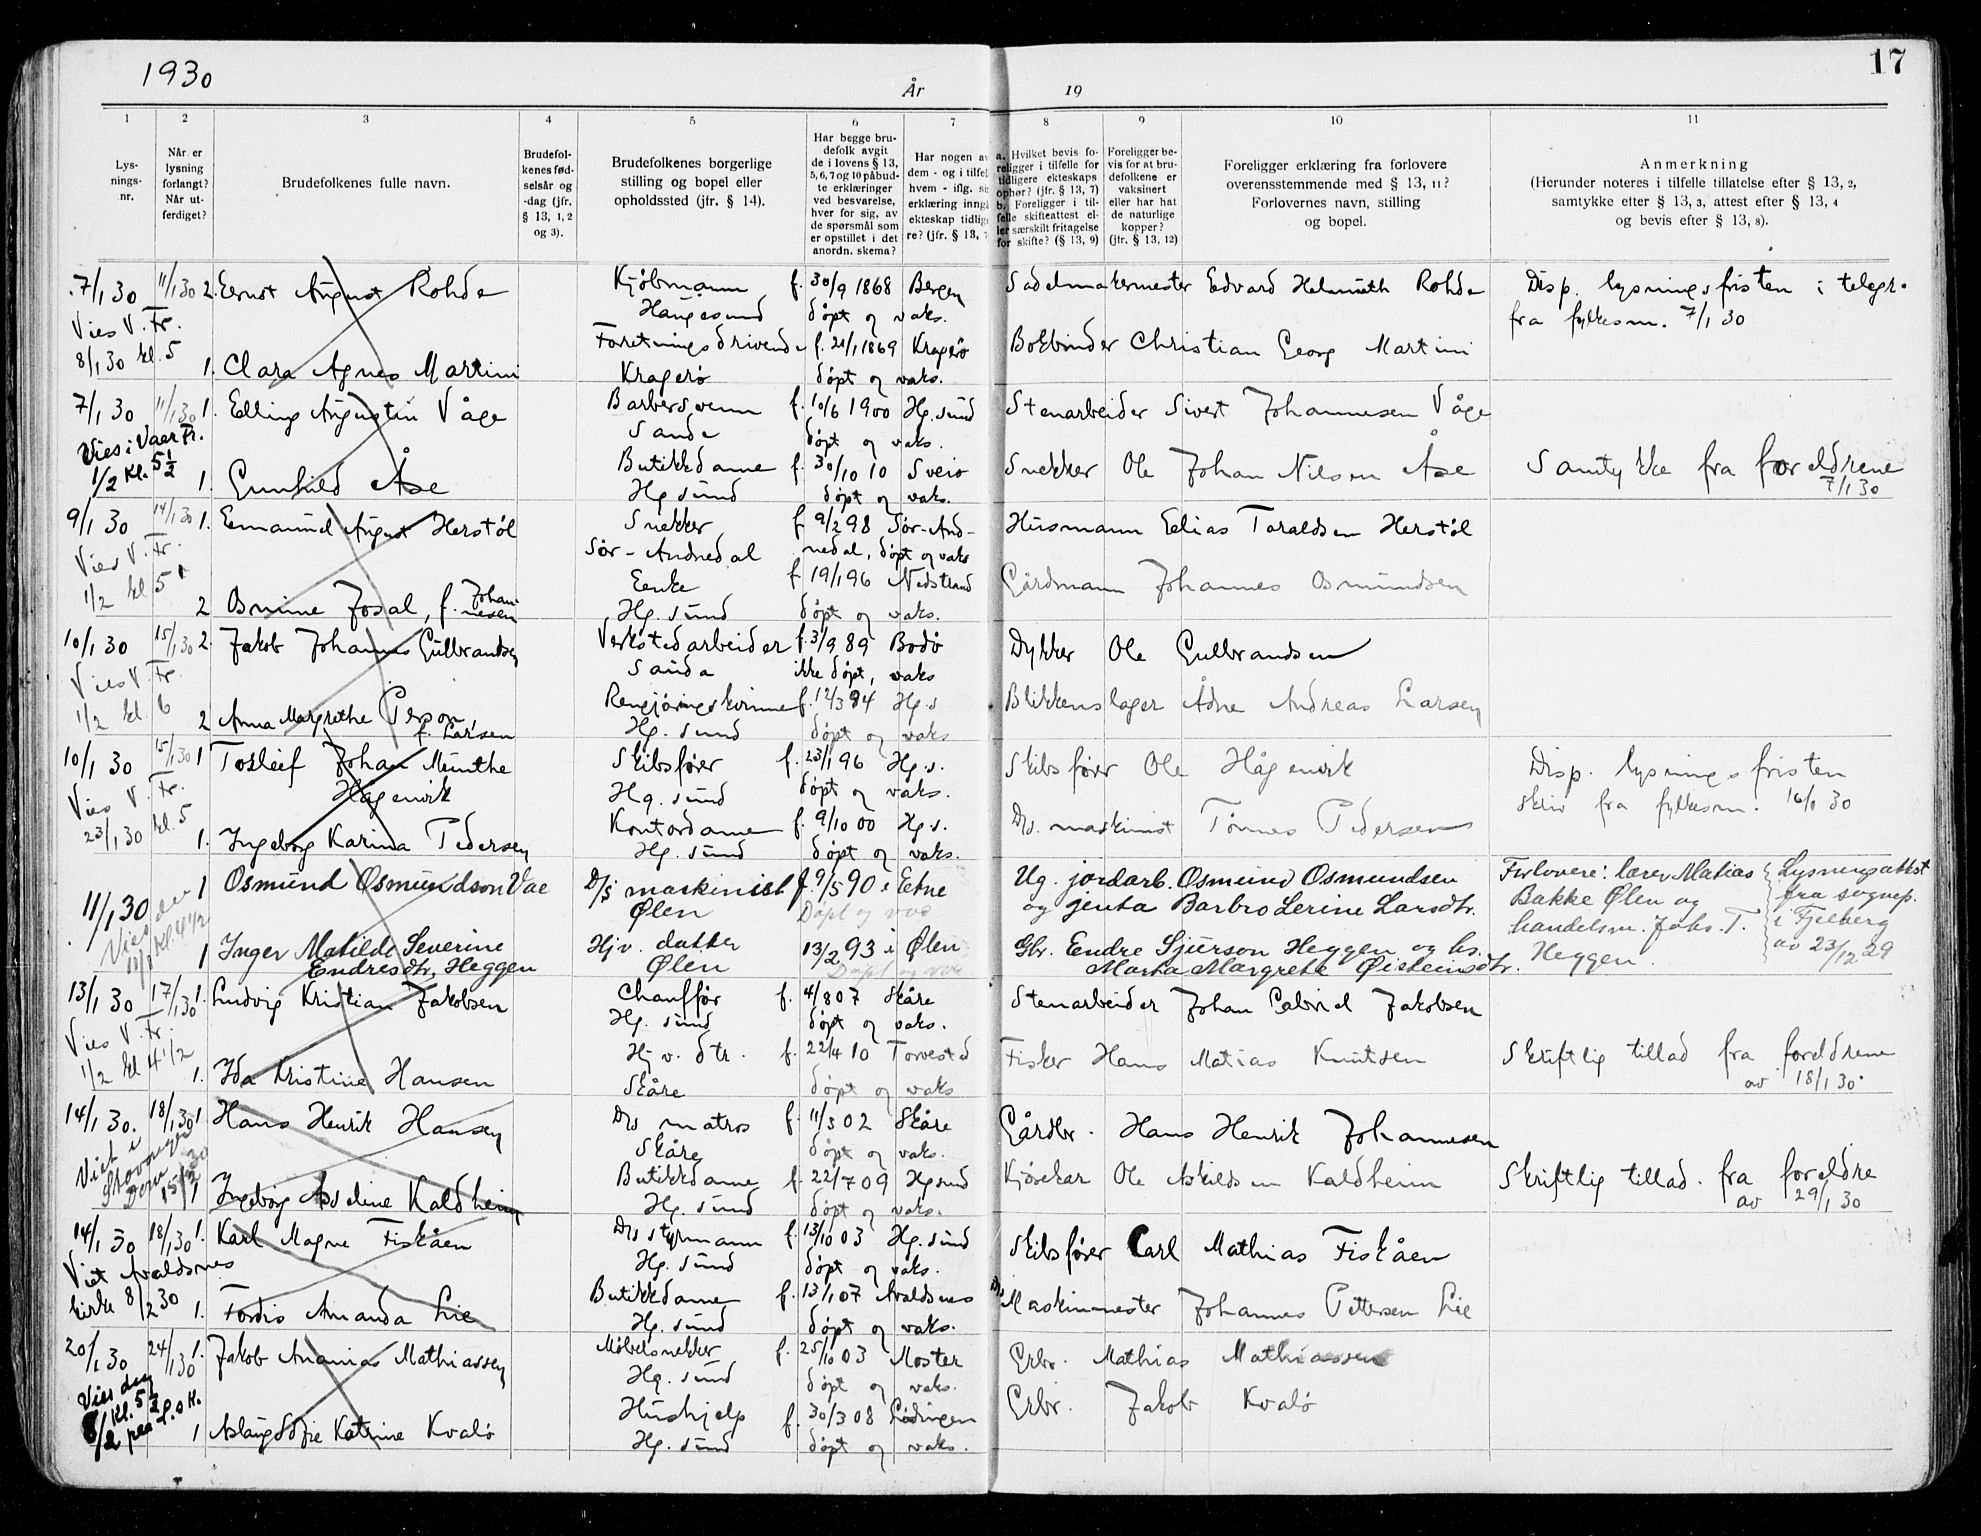 1930
År
19
17
1 2 3 4 5 6 7 8 9 10 11
Lys-
nings-
nr.
Når er
lysning
forlangt?
Når ut-
ferdiget?
Brudefolkenes fulle navn.
Brudefol-
kenes fød-
selsår og
-dag (jfr.
§ 13, 1, 2
og 3).
Brudefolkenes borgerlige
stilling og bopel eller
opholdssted (jfr. § 14).
Har begge bru-
defolk avgit
de i lovens § 13,
5, 6, 7 og 10 påbud-
te erklæringer
ved besvarelse,
hver for sig, av
de spørsmål som
er opstillet i det
anordn. skema?
Har nogen av
dem - og i tilfel
hvem - iflg. si
erklæring inngå
ekteskap tidlig
re? (jfr. § 13, 7
a. Hvilket bevis fo-
religger i tilfelle for
tidligere ekteskaps
ophør? (jfr. § 13, 7)
b. Foreligger i til-
felle skifteattest el-
ler særskilt fritagelse
for skifte? (§ 13, 9)
Foreligger be-
vis for at bru-
defolkene er
vaksinert
eller har hat
de naturlige
kopper?
(jfr. § 13, 12)
Foreligger erklæring fra forlovere
overensstemmende med § 13, 11?
Forlovernes navn, stilling
og bopel.
Anmerkning
(Herunder noteres i tilfelle tillatelse efter § 13, 2,
samtykke etter § 13, 3, attest efter § 13, 4
og bevis efter § 13, 8).
7/1 30 11/1 30 2. Ernst August Rohde Kjøbmann f. 30/9 1868 Bergen Sadelmakermester Edvard Helmuth Rohde Disp. lysningsfristen i telegr.
Vies V. Fr. Haugesund døpt og vaks. fra fylkesm. 7/1 30
8/1 30 kl. 5 Foretningsdrivende f. 21/1 1869 Kragerø Bokbinder Christian Georg Martini
1. Clara Agnes Martini Kragerø døpt og vaks.
7/1 30 11/1 30 1. Elling Augustin Våge Barbersvenn f. 10/6 1900 Hg.sund Stenarbeider Sivert Johannesen Våge
Vies i Vaer Fr. Sauda døpt og vaks.
1/2 Kl. 5 1/2 Butikkdame f. 30/10 10 Sveio Snekker Ole Johan Nilsen Åse Samtykke fra foreldrene
1. Gunhild Åse Hg. sund døpt og vaks. 7/1 30
9/1 30 14/1 30 1. Emanuel August Herstøl Snekker f 9/2 98 Sør-And- Husmann Elias Taraldsen Herstøl
Vies V. Fr. Sør-Audnedal nedal, døpt og vaks
1/2 kl 5 Enke f 19/1 96 Nedstrand Gårdmann Johannes Osmundsen
2 Osmine Josal, f. Johan-
nesen Hg. sund døpt og vaks.
10/1 30 15/1 30 2. Jakob Johannes Gulbrandsen Verkstedarbeider f 3/9 89 Bodø Dykker Ole Gulbrandsen
Vies V. Fr. Sauda ikke døpt, vaks
1/2 kl. 6 Rengjøringskvinne f. 12/3 94 Hg.s Blikkenslager Ådne Andreas Larsen
2 Anna Margrethe Person,
f. Larsen Hg. sund døpt og vaks
10/1 30 15/1 30 1 Torleif Johan Munthe Skibsfører f. 23/1 96 Hg.s. Skibsfører Ole Hågenvik Disp. lysningsfristen
Vies V. Fr. Hågenvik Hg. sund døpt og vaks. skriv fra fylkesm. 16/1 30
23/1 30 kl. 5 Kontordame f. 9/10 00 Hg.s. Ds. maskinist Tønnes Pedersen
1. Ingeborg Karina Pedersen Hg. sund døpt og vaks.
11/1 30 1 Osmund Osmundson Vae D/s maskinist f. 9/5 90 i Etne Ug. jordarb. Osmund Osmundsen Forlovere: lærer Matias Lysningsattest
Vies den Ølen Døpt og vac og jenta Barbro Lerine Larsdtr. Bakke Ølen og fra sognep.
kl 4 1/2 handelsm. Johs. T. i Fjelberg
1 Inger Matilde Severine Hjv. datter 13/2 93 i Ølen Gbr. Endre Sjurson Heggen og hs. Heggen. av 23/12 29
Endresdtr. Heggen Ølen Døpt og vac Marta Margrete Øisteinsdtr.
13/1 30 17/1 30 1. Ludvig Kristian Jakobsen Chauffør f. 4/8 07 Skåre Stenarbeider Johan Gabriel Jakobsen
Vies V. Fr. Hg. sund døpt og vaks.
1/2 kl 4 1/2 Hjv. dtr. f. 22/4 10 Torvestad Fisker Hans Matias Knutsen Skriftlig tillad fra foreldrene
1. Ida Kristine Hansen Skåre døpt og vaks av 18/1 30.
14/1 30. 18/1 30 1 Hans Henrik Hansen Ds matros f. 11/3 02 Skåre Gårdbr. Hans Henrik Johannesen
Viet i Skåre døpt og vaks.
Stavanger Butikkdame f. 22/7 09 Hgsund Kjørekar Ole Askildsen Kaldheim Skriftlig tillad. fra foreldre
Dom 1 Ingeborg Asseline Kaldheim Hg. sund døpt og vaks. av 29/1 30
14/1 30 18/1 30 1. Karl Magne Fiskåen Ds styrmann f. 13/10 03 Hg. sund Skibsfører Carl Mathias Fiskåen
Viet Avaldsnes Hg. sund døpt og vaks.
kirke 8/2 30 Butikkdame f. 13/1 07 Avaldsnes Ds Maskinmester Johannes Pettersen Lie
1. Tordis Amanda Lie Hg. sund døpt og vaks.
20/1 30 24/1 30 1. Jakob Ananias Mathiassen Møbelsnekker f. 25/10 03 Moster Grbr. Mathias Mathiassen
Vies den Hg. sund døpt og vaks.
Kl. 5 1/2 Hushjelp f. 30/3 08 Lødingen Grbr. Jakob Kvalø
8/2 paa P. s K. 1 Aslaug Sofie Katrine Kvalø Hg. sund døpt og vaks.